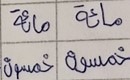 مائة مائة
خمسون خمسون